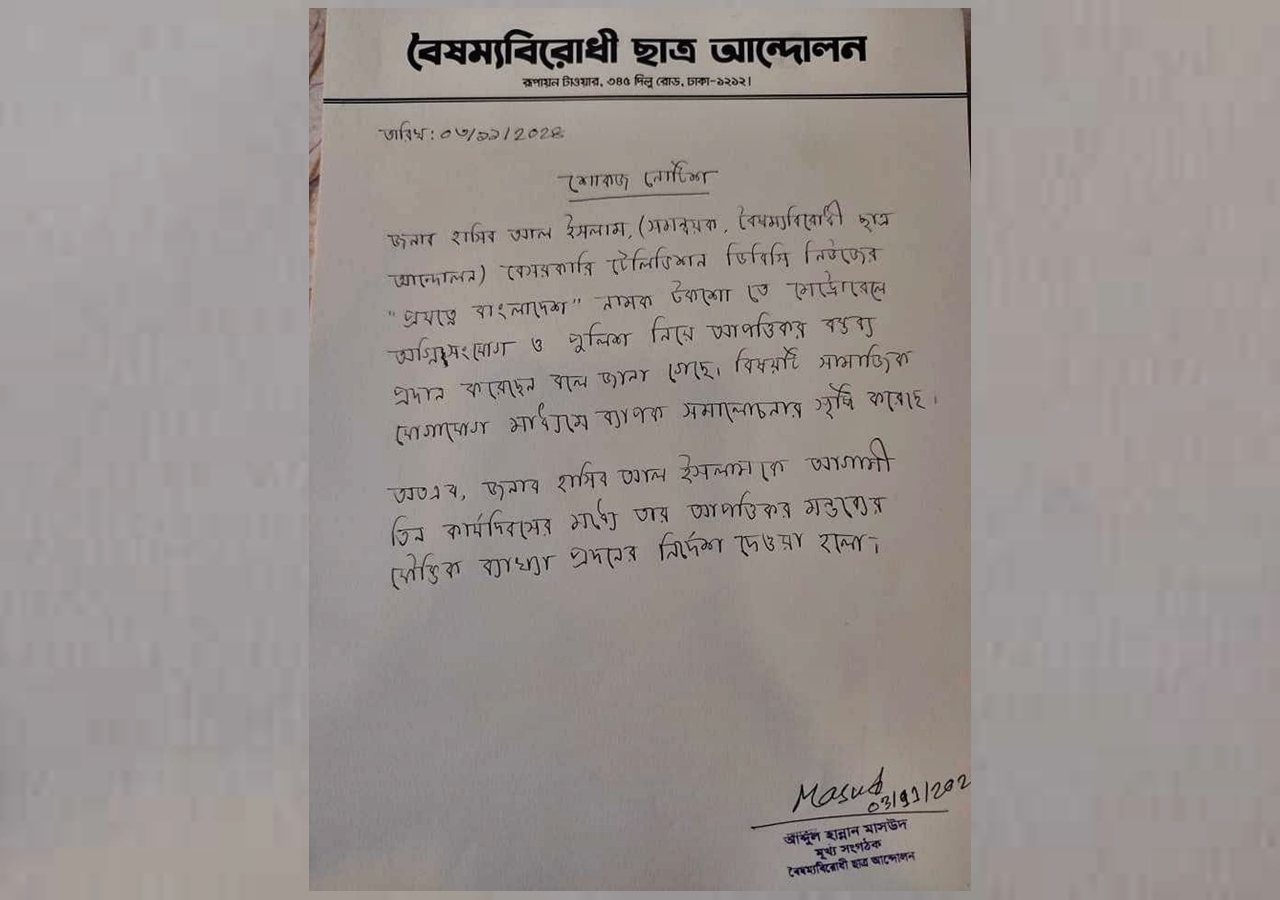 বৈষম্যবিরোধী ছাত্র আন্দোলন
রূপায়ন টাওয়ার, ৩৪৫ দিলু রোড, ঢাকা-১২১২।
তারিখ : ০৩/১১/2028
শোকজ নোটিশ
জনাব হাসিব আল ইসলাম, (সমন্বয়ক, বৈষম্যবিরোধী ছাত্র
আন্দোলন) বেসরকারি টেলিভিশন ডিবিসি নিউজের
"প্রযত্নে বাংলাদেশ" নামক টকশো তে মেট্রোরেলে
অগ্নিসংযোগ ও পুলিশ নিয়ে আপত্তিকর বক্তব্য
প্রদান করেছেন বলে জানা গেছে। বিষয়টি সামাজিক
যোগাযোগ মাধ্যমে ব্যাপক সমালোচনার সৃষ্টি করেছে।
অতএব, জনাব হাসিব আল ইসলামকে আগামী
তিন কার্যদিবসের মধ্যে তার আপত্তিকর মন্তব্যের
যৌক্তিক ব্যাখ্যা প্রদনের নির্দেশ দেওয়া হলো।
Masud
03/11/202
আব্দুল হান্নান মাসউদ
মূখ্য সংগঠক
বৈষম্যবিরোধী ছাত্র আন্দোলন